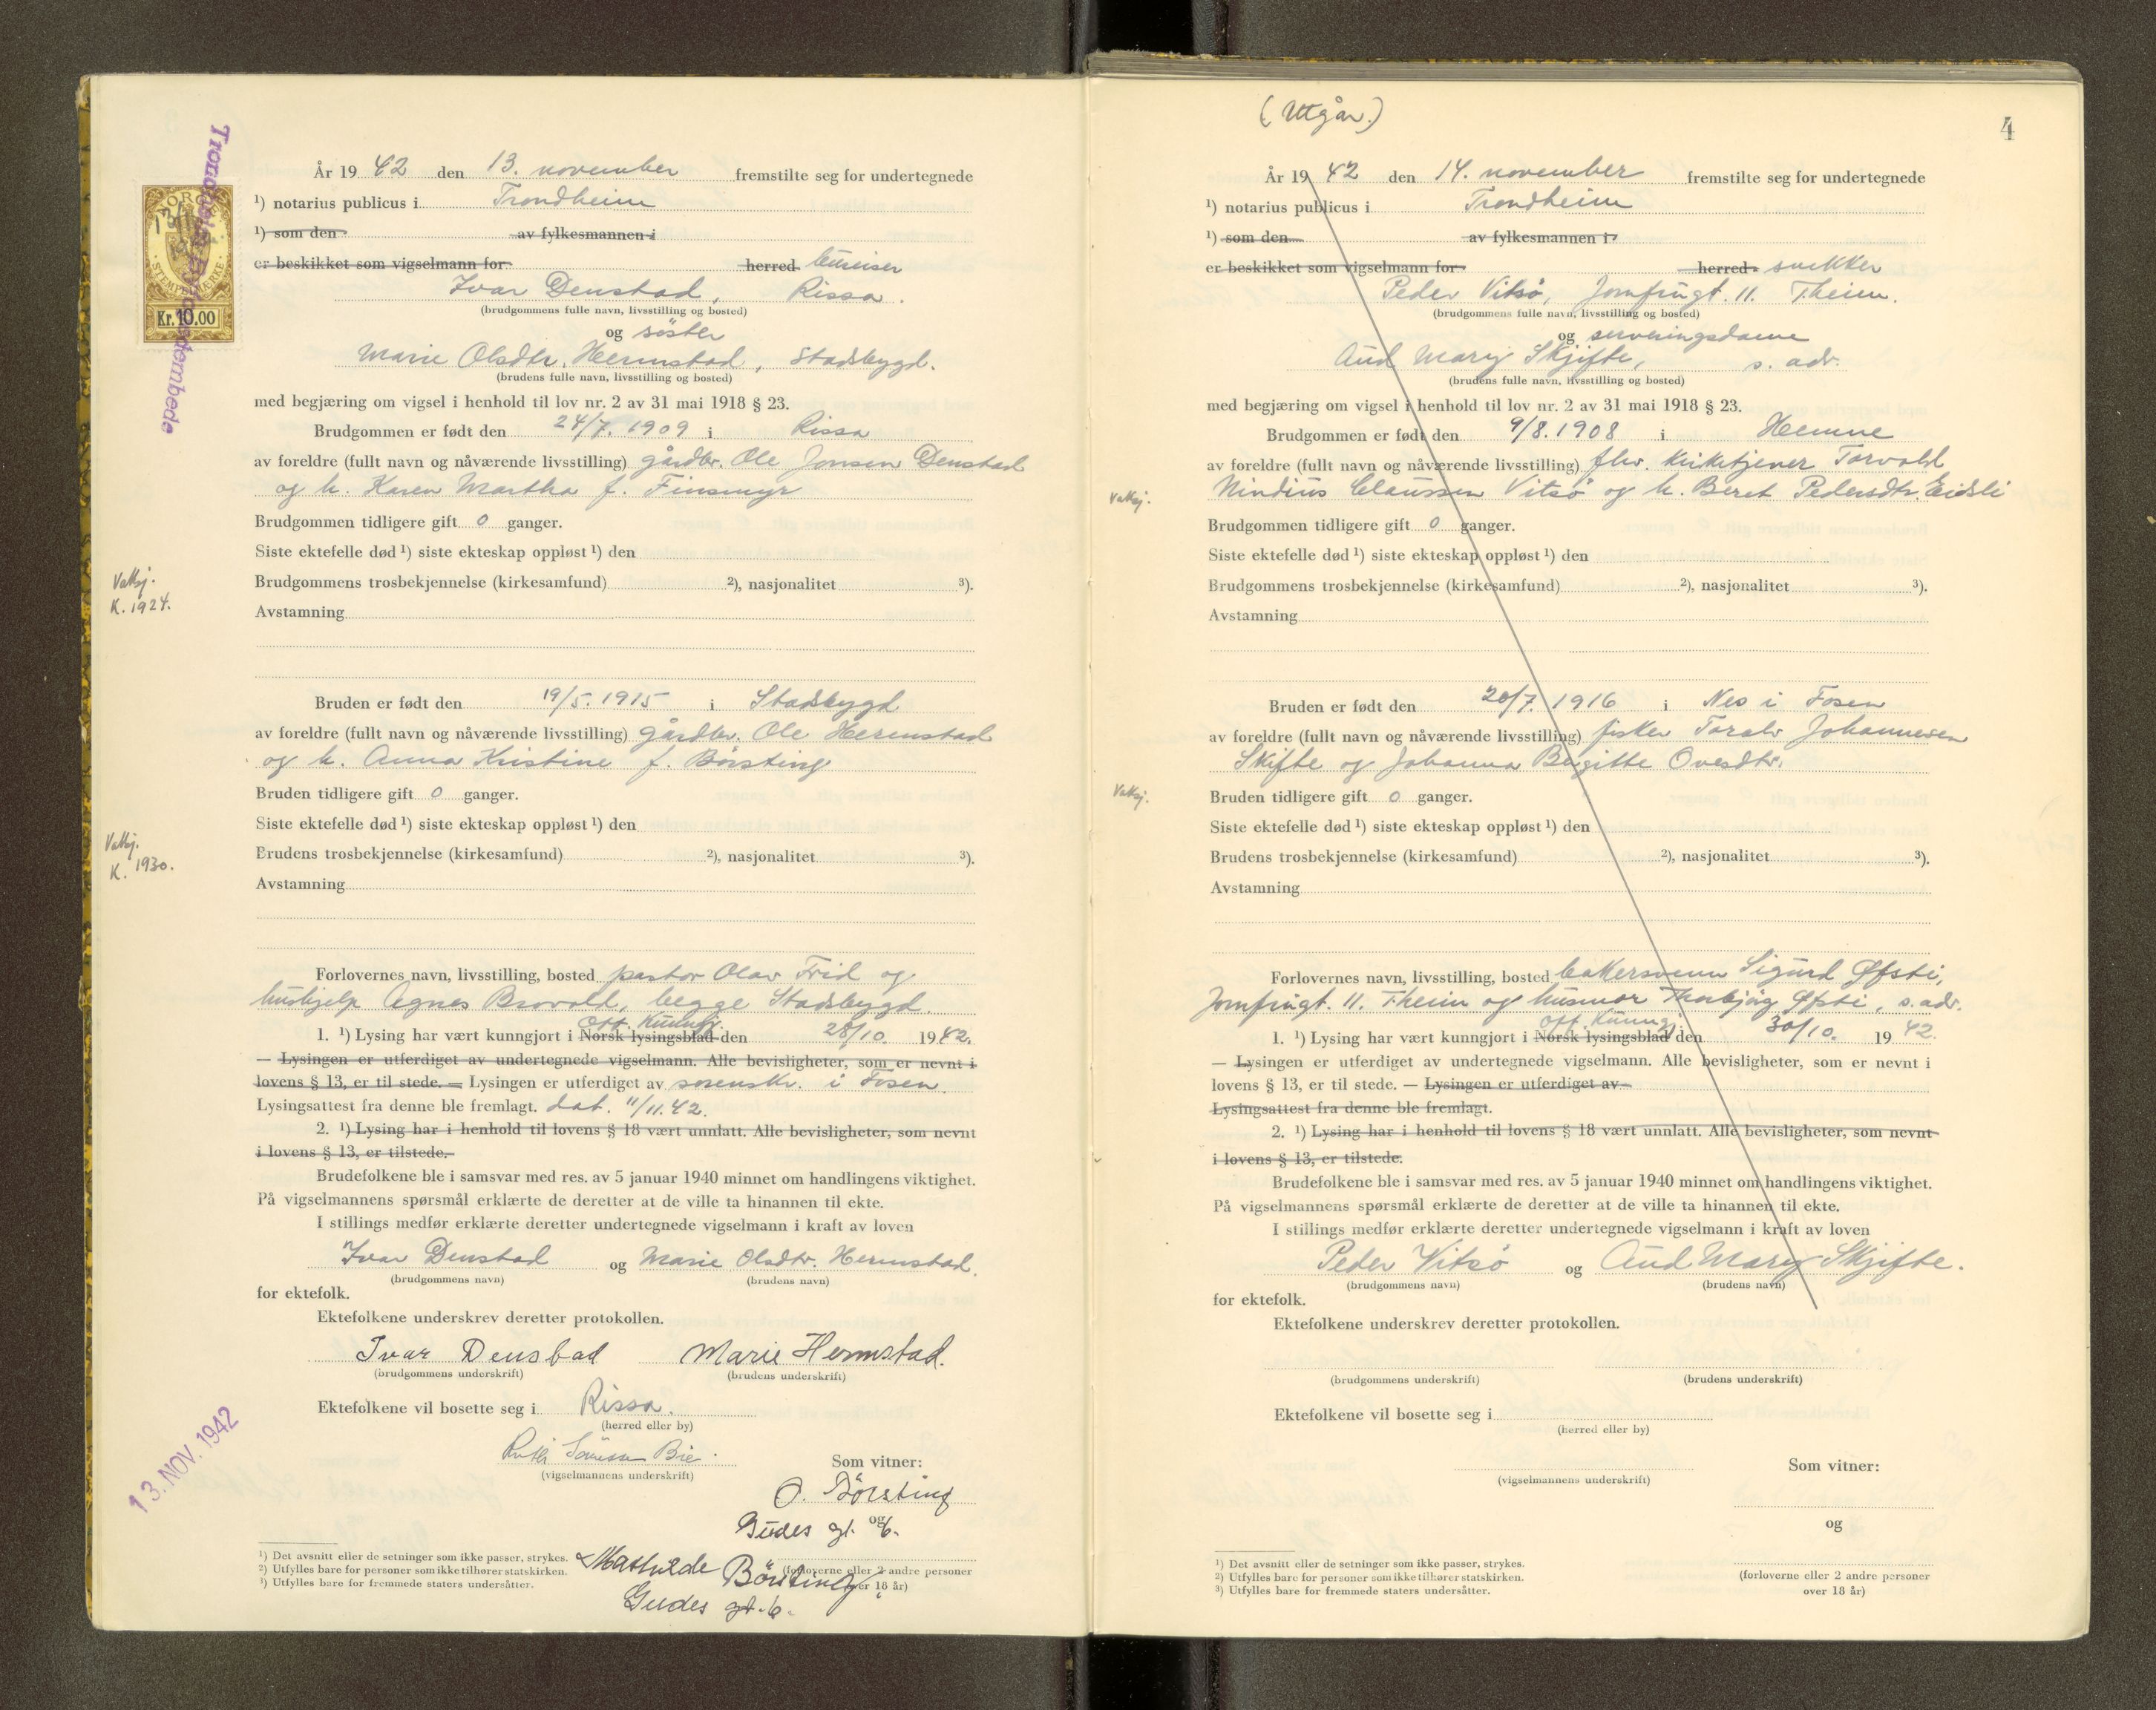 Trondheim Byfogdembede
NORGE
13/11
STEMPELMERKE
Kr. 10.00
År 1942 den 13. november fremstilte seg for undertegnede
¹) notarius publicus i Trondheim
¹) som den av fylkesmannen i
er beskikket som vigselmann for herred bureiser
Ivar Denstad, Rissa.
(brudgommens fulle navn, livsstilling og bosted)
og søster
Marie Olsdtr. Hermstad, Stadsbygd.
(brudens fulle navn, livsstilling og bosted)
med begjæring om vigsel i henhold til lov nr. 2 av 31 mai 1918 § 23.
Brudgommen er født den 24/7. 1909 i Rissa
av foreldre (fullt navn og nåværende livsstilling) gårdbr. Ole Jonsen Denstad
og h. Karen Martha f. Finsmyr
Brudgommen tidligere gift 0 ganger.
Siste ektefelle død ¹) siste ekteskap oppløst ¹) den
Vaksj.
K. 1924.
Brudgommens trosbekjennelse (kirkesamfund) ²), nasjonalitet ³).
Avstamning
Bruden er født den 19/5. 1915 i Stadsbygd
av foreldre (fullt navn og nåværende livsstilling) gårdbr. Ole Hermstad
og h. Anna Kristine f. Børsting
Bruden tidligere gift 0 ganger.
Siste ektefelle død ¹) siste ekteskap oppløst ¹) den
Vaksj.
K. 1930.
Brudens trosbekjennelse (kirkesamfund) ²), nasjonalitet ³).
Avstamning
Forlovernes navn, livsstilling, bosted pastor Olav Frid og
hushjelp Agnes Brovold, begge Stadsbygd.
Off. Kunngj.
1. ¹) Lysing har vært kunngjort i Norsk lysingsblad den 28/10. 1942.
— Lysingen er utferdiget av undertegnede vigselmann. Alle bevisligheter, som er nevnt i
lovens § 13, er til stede. — Lysingen er utferdiget av sorenskr. i Fosen.
Lysingsattest fra denne ble fremlagt. dat. 11/11.42.
2. ¹) Lysing har i henhold til lovens § 18 vært unnlatt. Alle bevisligheter, som nevnt
i lovens § 13, er tilstede.
Brudefolkene ble i samsvar med res. av 5 januar 1940 minnet om handlingens viktighet.
På vigselmannens spørsmål erklærte de deretter at de ville ta hinannen til ekte.
I stillings medfør erklærte deretter undertegnede vigselmann i kraft av loven
Ivar Denstad og Marie Olsdtr. Hermstad.
(brudgommens navn) (brudens navn)
for ektefolk.
Ektefolkene underskrev deretter protokollen.
Ivar Denstad Marie Hermstad.
(brudgommens underskrift) (brudens underskrift)
13. NOV. 1942
Ektefolkene vil bosette seg i Rissa.
(herred eller by)
Bie.
(vigselmannens underskrift)
Som vitner:
O. Börsting
Gudes gt. 6.
og
Mathilde Börsting
Gudes gt. 6.
(forloverne eller 2 andre personer
over 18 år)
¹) Det avsnitt eller de setninger som ikke passer, strykes.
²) Utfylles bare for personer som ikke tilhører statskirken.
³) Utfylles bare for fremmede staters undersåtter.
(Utgår.)
4
År 1942 den 14. november fremstilte seg for undertegnede
¹) notarius publicus i Trondheim
¹) som den av fylkesmannen i
er beskikket som vigselmann for herred snekker
Peder Vitsø, Jomfrugt. 11. Theim.
(brudgommens fulle navn, livsstilling og bosted)
og serveringsdame
Aud Mary Skjifte, s. adr.
(brudens fulle navn, livsstilling og bosted)
med begjæring om vigsel i henhold til lov nr. 2 av 31 mai 1918 § 23.
Brudgommen er født den 9/8. 1908 i Hemne
av foreldre (fullt navn og nåværende livsstilling) fhv. kirketjener Torvald
Vaksj.
Nindius Claussen Vitsø og h. Beret Pedersdtr. Eidsli
Brudgommen tidligere gift 0 ganger.
Siste ektefelle død ¹) siste ekteskap oppløst ¹) den
Brudgommens trosbekjennelse (kirkesamfund) ²), nasjonalitet ³).
Avstamning
Bruden er født den 20/7. 1916 i Nes i Fosen
av foreldre (fullt navn og nåværende livsstilling) fisker Toralv Johannesen
Skifte og Johanna Birgitte Ovesdtr.
Vaksj.
Bruden tidligere gift 0 ganger.
Siste ektefelle død ¹) siste ekteskap oppløst ¹) den
Brudens trosbekjennelse (kirkesamfund) ²), nasjonalitet ³).
Avstamning
Forlovernes navn, livsstilling, bosted bakersvenn Sigurd Øfsti,
Jomfrugt. 11. Theim og husmor Thorbjørg Øfsti, s. adr.
off. Kunngj.
1. ¹) Lysing har vært kunngjort i Norsk lysingsblad den 30/10. 1942.
— Lysingen er utferdiget av undertegnede vigselmann. Alle bevisligheter, som er nevnt i
lovens § 13, er til stede. — Lysingen er utferdiget av
Lysingsattest fra denne ble fremlagt.
2. ¹) Lysing har i henhold til lovens § 18 vært unnlatt. Alle bevisligheter, som nevnt
i lovens § 13, er tilstede.
Brudefolkene ble i samsvar med res. av 5 januar 1940 minnet om handlingens viktighet.
På vigselmannens spørsmål erklærte de deretter at de ville ta hinannen til ekte.
I stillings medfør erklærte deretter undertegnede vigselmann i kraft av loven
Peder Vitsø og Aud Mary Skjifte.
(brudgommens navn) (brudens navn)
for ektefolk.
Ektefolkene underskrev deretter protokollen.
(brudgommens underskrift) (brudens underskrift)
Ektefolkene vil bosette seg i
(herred eller by)
(vigselmannens underskrift)
Som vitner:
og
(forloverne eller 2 andre personer
over 18 år)
¹) Det avsnitt eller de setninger som ikke passer, strykes.
²) Utfylles bare for personer som ikke tilhører statskirken.
³) Utfylles bare for fremmede staters undersåtter.